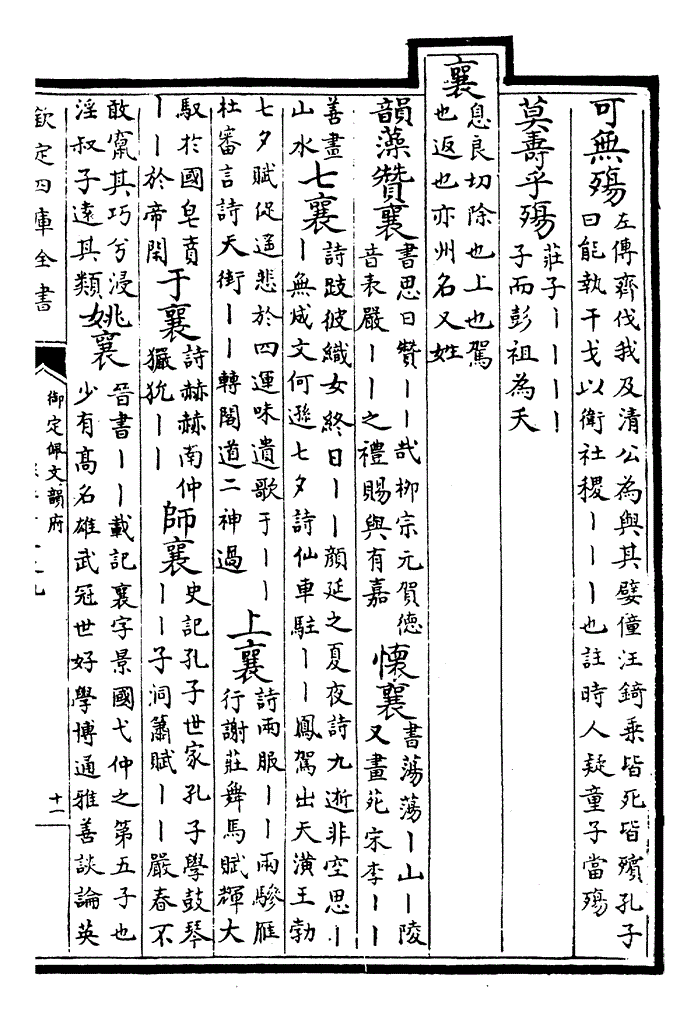 可無殤
左傳齊伐我及清公為與其嬖僮汪錡乗皆死皆殯孔子
曰能執干戈以衛社稷丨丨丨也註時人疑童子當殤
莫壽乎殤
莊子丨丨丨丨
子而彭祖為夭
襄
息良切除也上也駕
也返也亦州名又姓
韻藻
贊襄
書思曰贊丨丨哉栁宗元賀德
音表嚴丨丨之禮賜與有嘉
懷襄
書蕩蕩丨山丨陵
又畫苑宋李丨丨
善畫
山水
七襄
詩跂彼織女終日丨丨顔延之夏夜詩九逝非空思丨
丨無成文何遜七夕詩仙車駐丨丨鳳駕出天潢王勃
七夕賦促遥悲於四運味遺歌于丨丨
杜審言詩天街丨丨轉閣道二神過
上襄
詩兩服丨丨兩驂雁
行謝莊舞馬賦輝大
馭於國皂賁
丨丨於帝閑
于襄
詩赫赫南仲
玁狁丨丨
師襄
史記孔子世家孔子學鼓琴
丨丨子洞簫賦丨丨嚴春不
敢竄其巧兮浸
淫叔子逺其類
姚襄
晉書丨丨載記襄字景國弋仲之第五子也
少有髙名雄武冠世好學博通雅善談論英
欽定四庫全書
御定佩文韻府
十一